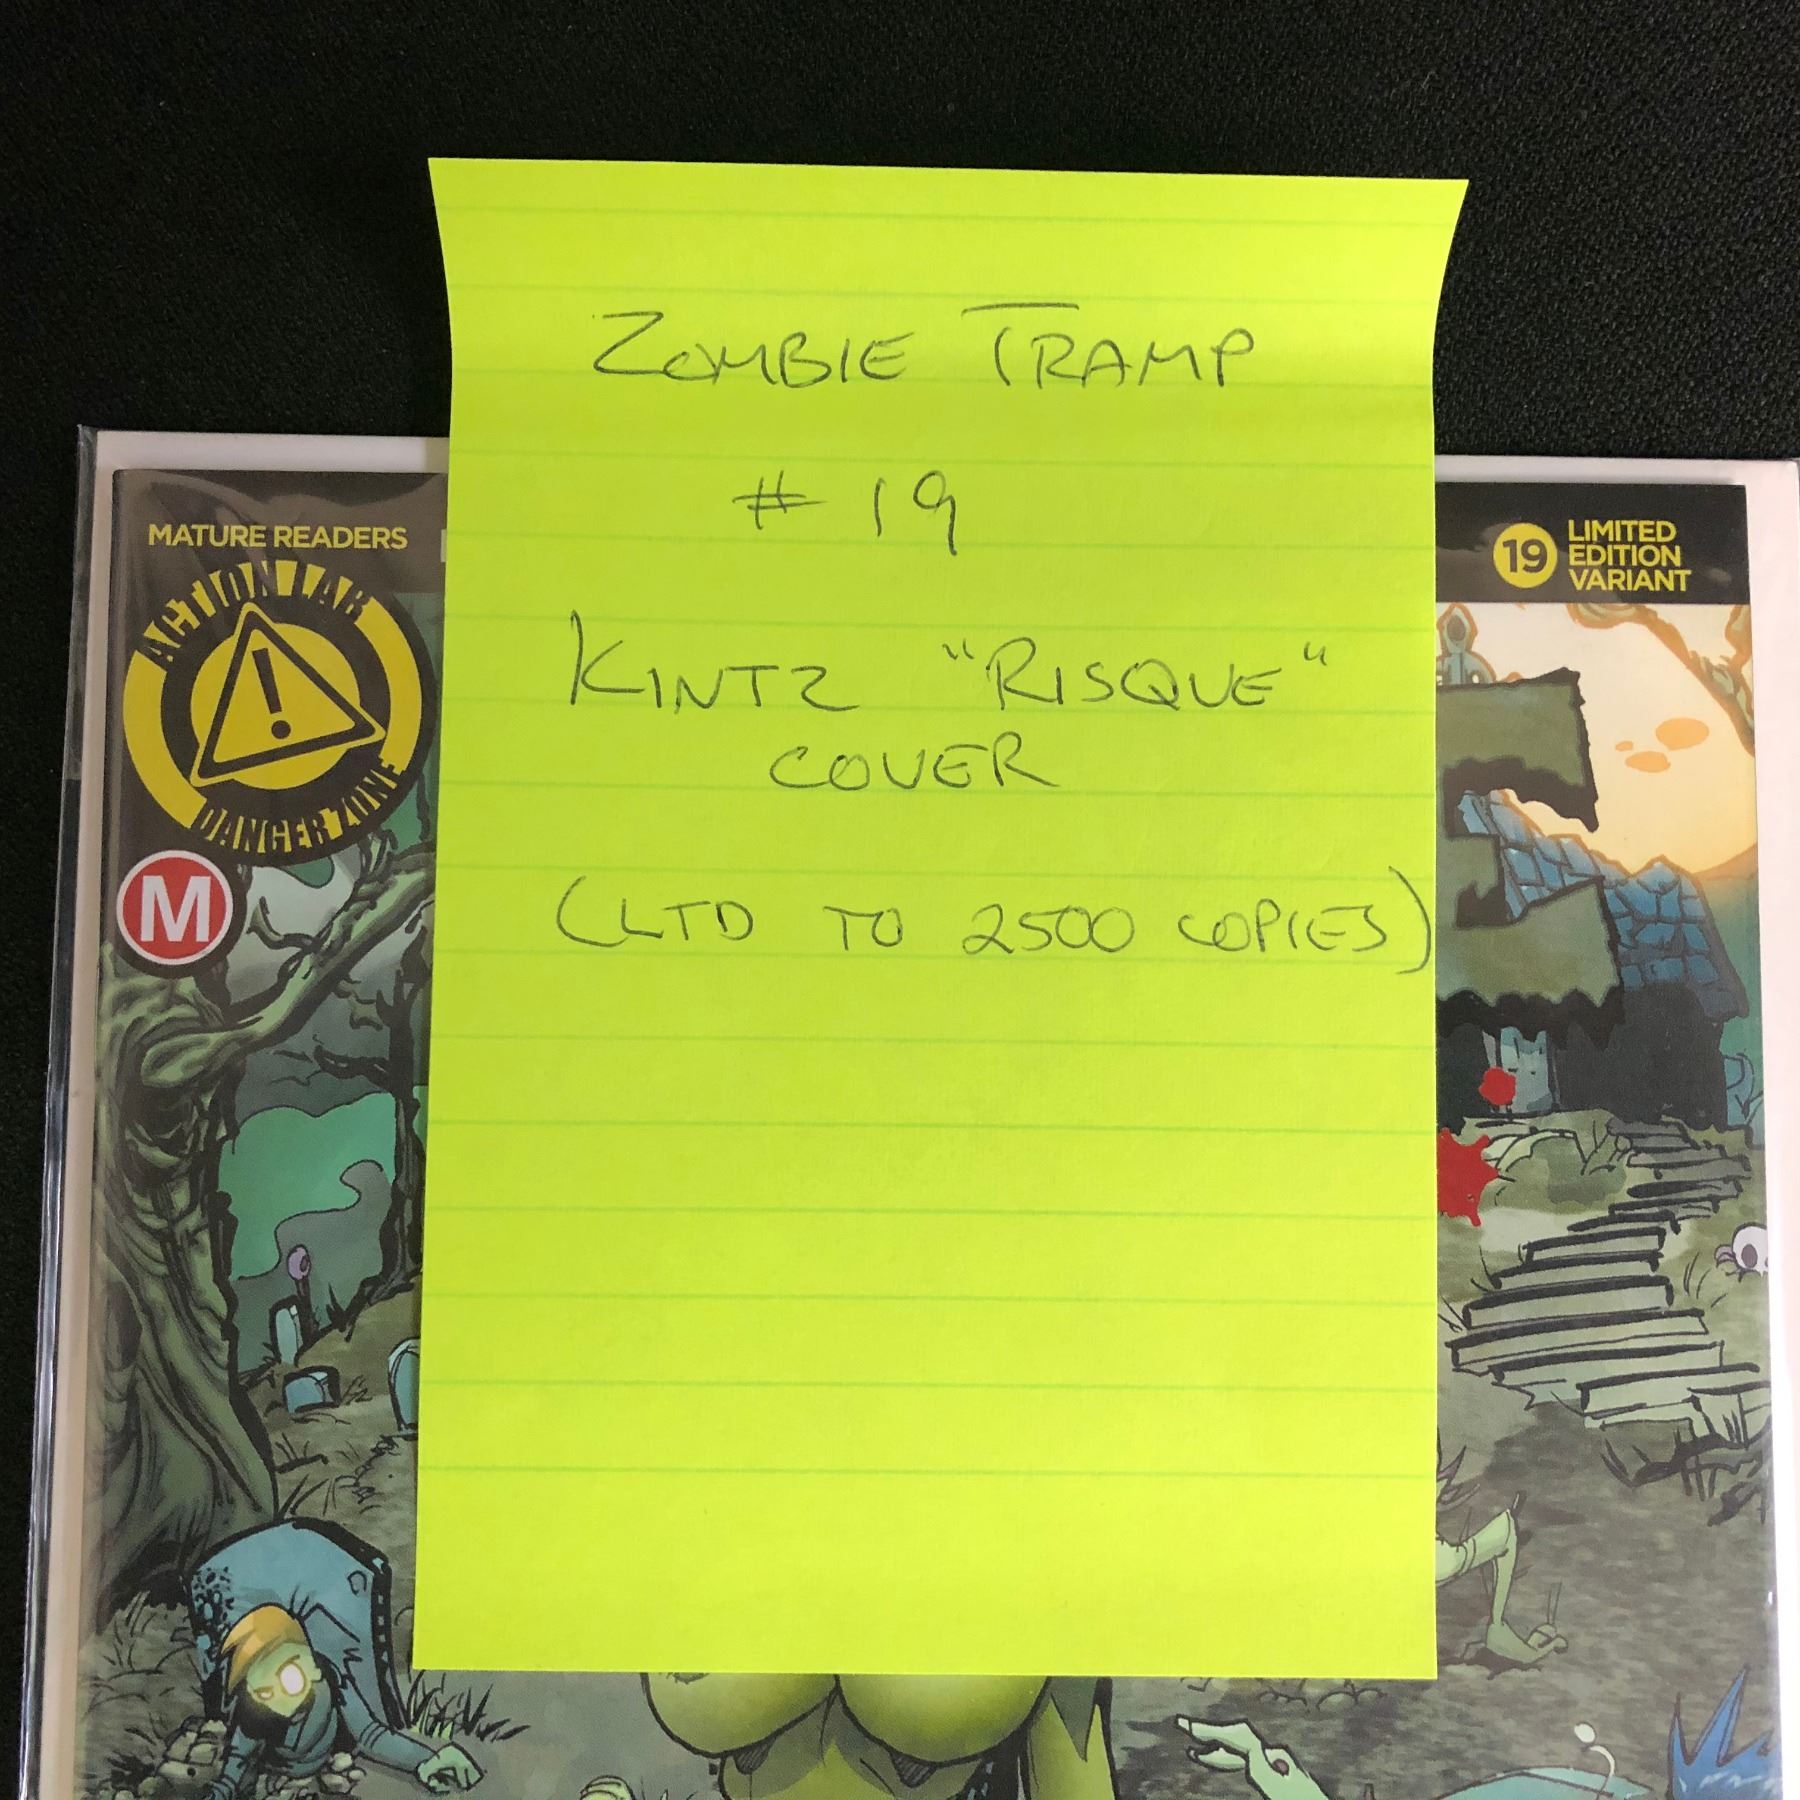 ZOMBIE TRAMP
# 19
KINTZ "RISQUE"
COVER
(LTD TO 2500 COPIES)
MATURE READERS
ACTION LAB
DANGER ZONE
!
M
19
LIMITED
EDITION
VARIANT